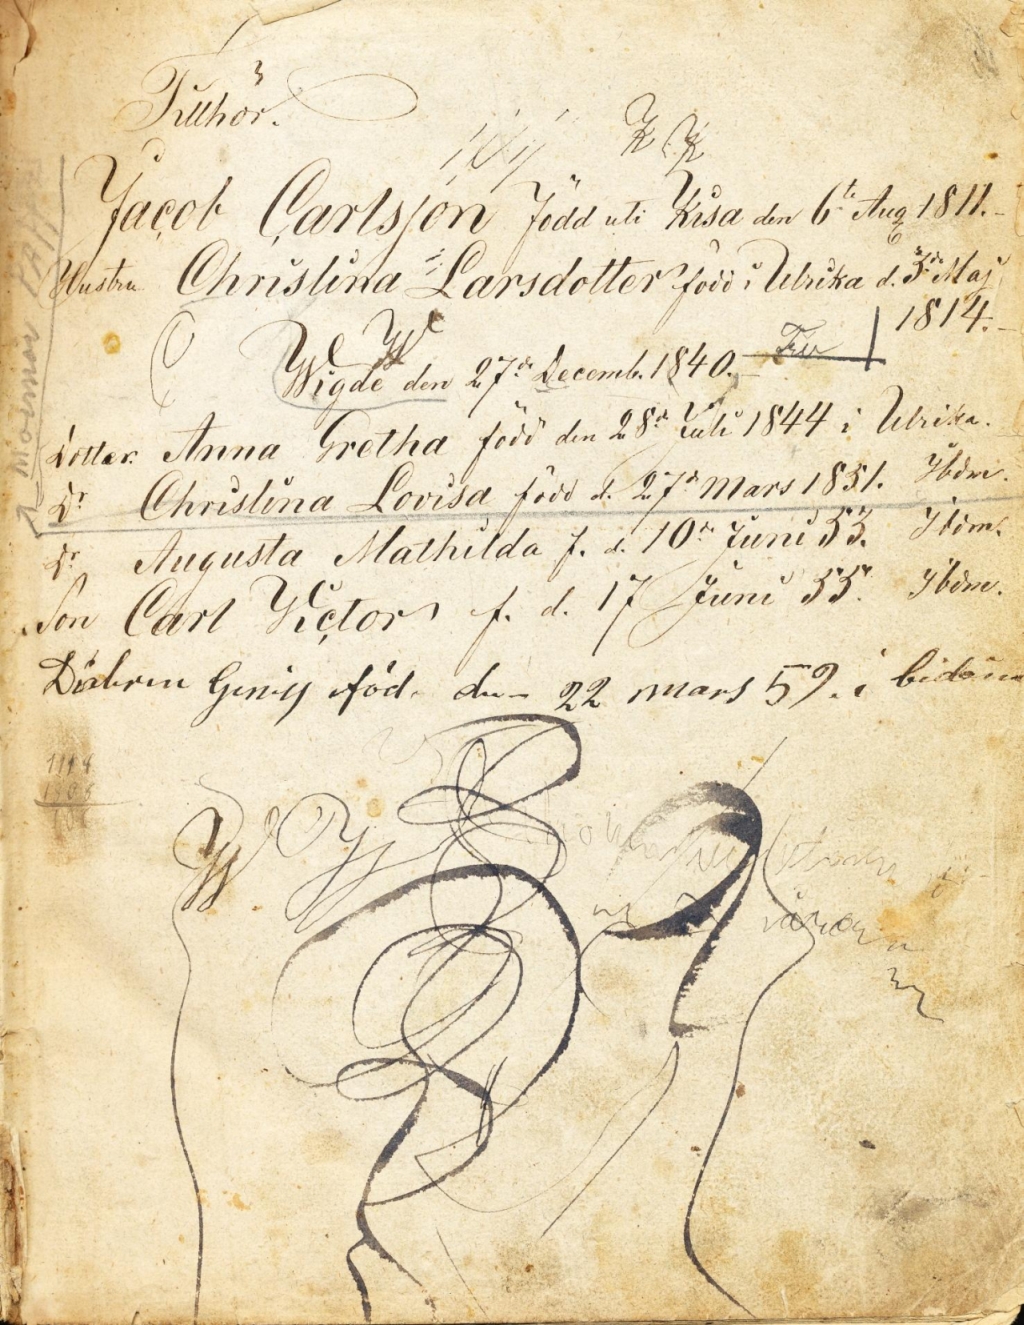 Tillhör.
K K
Jacob Carlsson född uti Kisa den 6te Aug 1811.-
Hustru Christina Larsdotter född i Ulrika d. 3de Maj
1814.-
W W
Wigde den 27de Decemb. 1840.-
Dotter. Anna Gretha född den 28de Juli 1844 i Ulrika.
Dr Christina Lovisa född d. 27de Mars 1851. Ibdm.
Dr Augusta Mathilda f. d. 10de Juni 53. Ibdm.
Son Carl Victor f. d. 17 Juni 55. Ibdm.
född. den 22 mars 59. i
W W
mormor